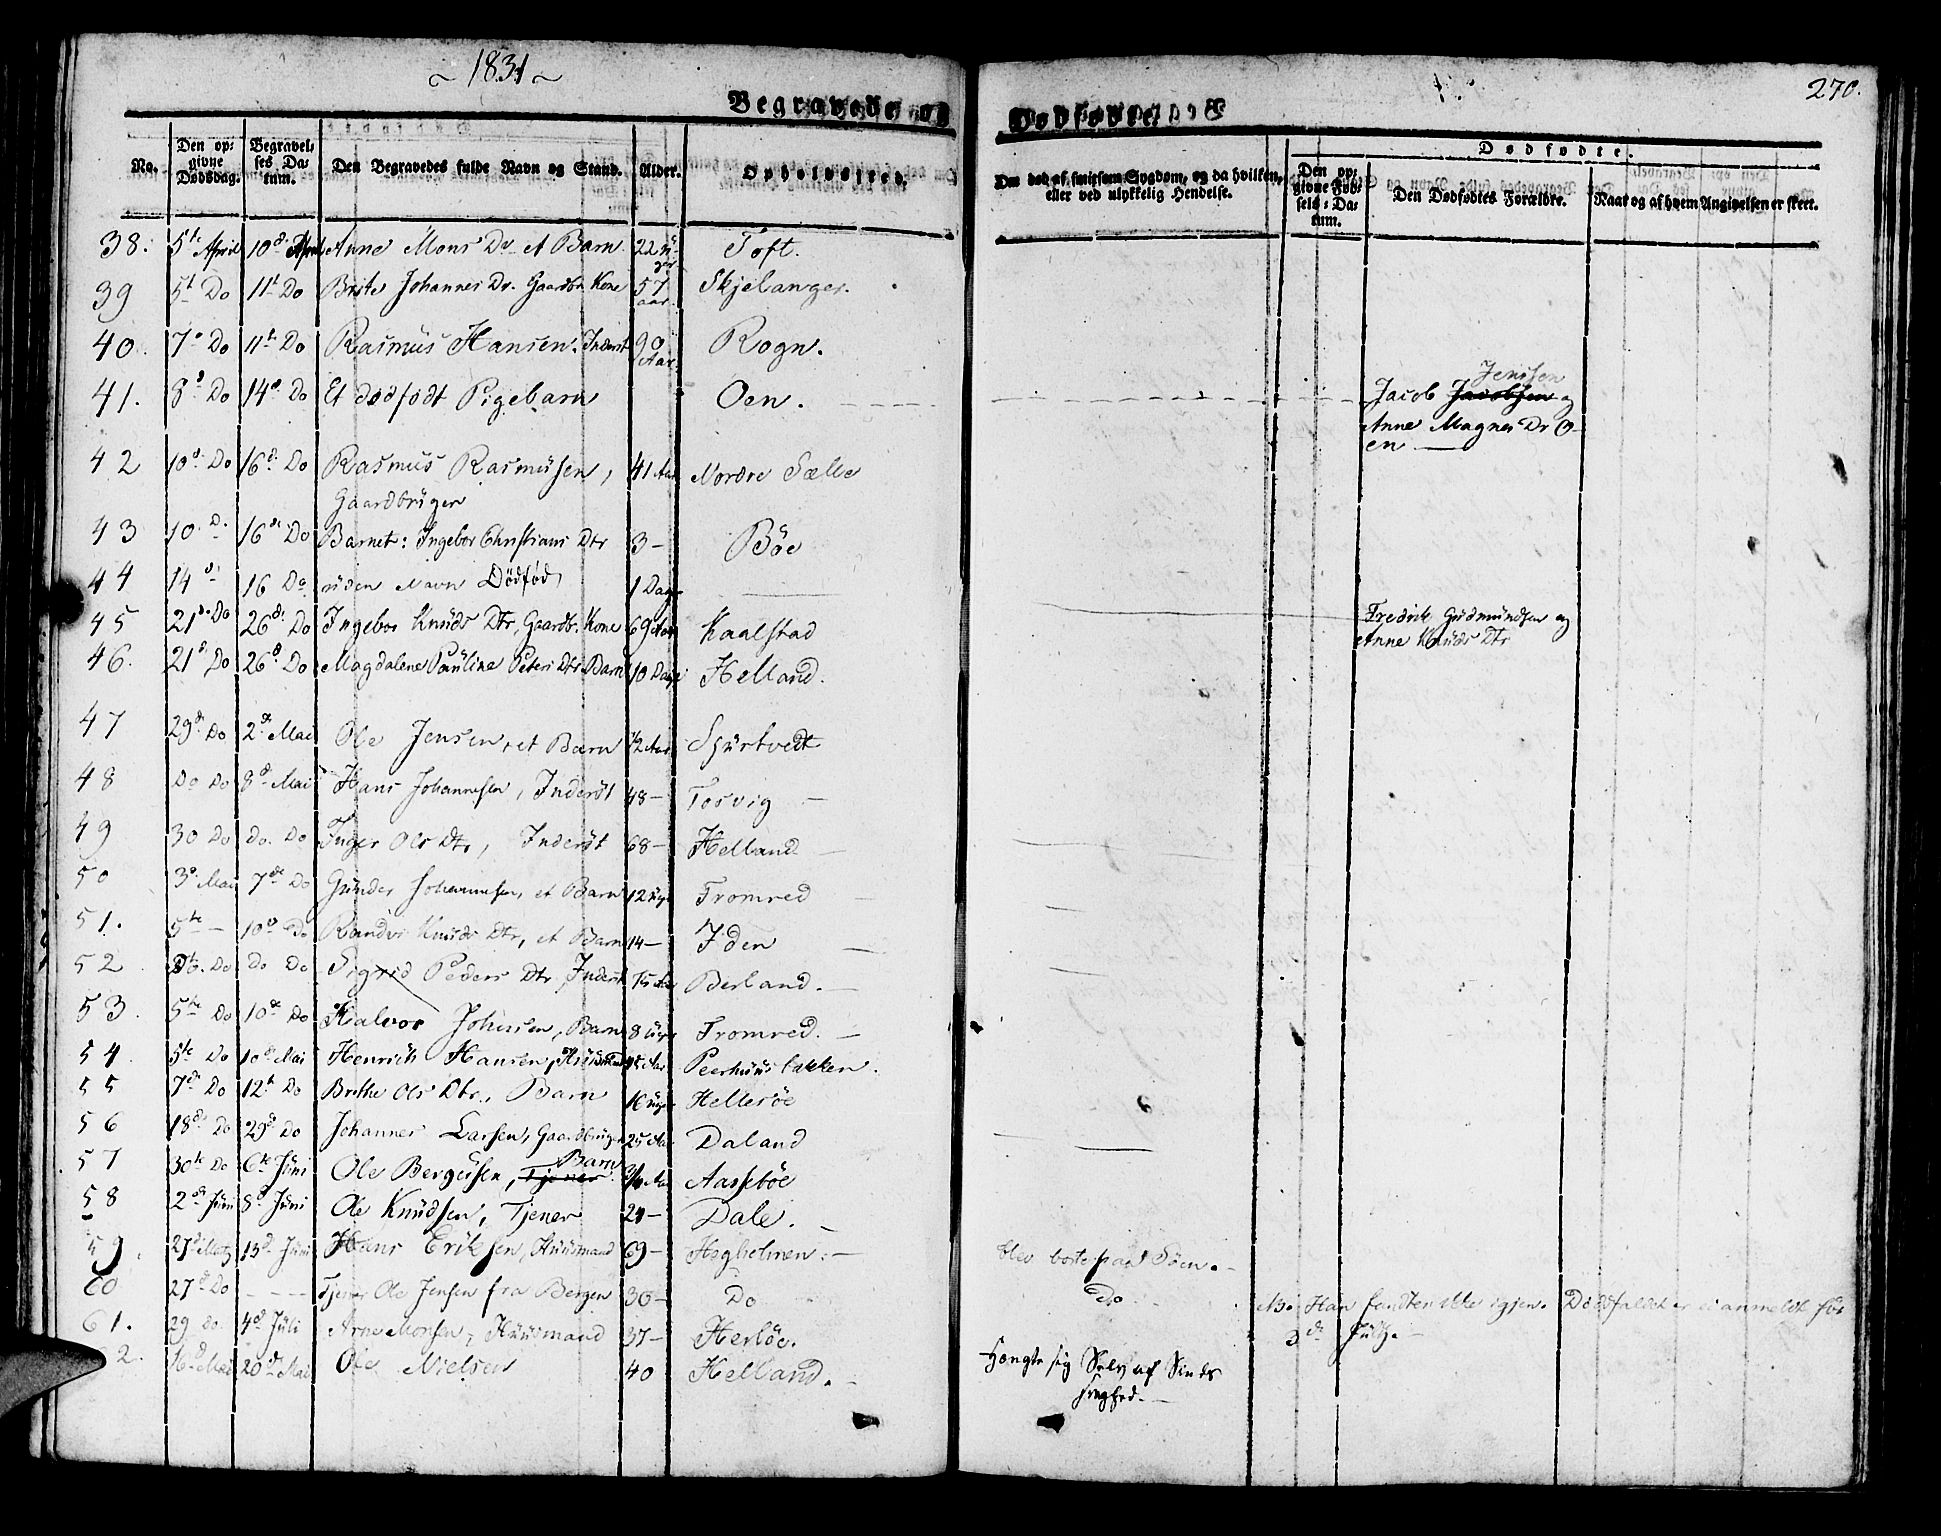 ~ 1831 ~
270.
Begravede og Dødfødte
No. Den opgivne Dødsdag. Begravelses Datum. Den Begravedes fulde Navn og Stand. Alder. Opholdssted. Om død af smitsom Sygdom, og da hvilken, eller ved ulykkelig Hendelse. Dødfødte. Den opgivne Fødsels-Datum. Den Dødfødtes Forældre. Naar og af hvem Angivelsen er skeet.
38. 5te April 10de April Anne Mons Dr et Barn 22 Uger Toft.
39 5te Do 11te Do Brite Johannes Dr. Gaardbr. Kone 57 aar. Skjelanger.
40. 7de Do 11te Do Rasmus Hansen. Inderst 90 Aar. Rogn.
41. 8de Do 14de Do Et dødfødt Pigebarn Oen. Jacob Jacobsen Jensen og
Anne Magnes Dr O-
en
42 10de Do 16de Do Rasmus Rasmusen, 41 Aar Nordre Sælle
Gaardbruger
43 10. D. 16de Do Barnet: Ingebor Christians Dtr 3 - Böe
44 14de 16 Do uden Navn Dödfød 1 Dag
45 21de Do 26de Do Ingebor Knuds Dtr, Gaardbr. Kone 69 Aar Kaalstad Fredrik Gudmundsen og
Anne Knuds Dtr
46. 21de Do 26de Do Magdalene Pauline Peters Dtr Barn 10 Dage Helland.
47 29de Do 2de Mai Ole Jensen, et Barn 1/2 Aar Spurtvedt
48 Do Do 8de Mai Hans Johannesen, Inderst 48 - Tosvig -
49 30 Do Do. Do Inger Ols Dtr, Inderst 68 - Helland -
50 3de Mai 7de Do Gunder Johannesen, et Barn 12 Uge Fromred
51. 5te - 10de Do Randvi Knuds Dtr, et Barn 14 - Iden
52 Do. Do Do Do Sigrid Peders Dtr, Inderst 75 Aar Berland. -
53. 5te Do 10de Do Halvor Johnsen, Barn 8 Uge Fromred. -
54. 5te Do 10de Mai Henrich Hansen, Huusmand Aar Peerhuus bakken.
55 7de Do 12te Do Brithe Ols Dtr., Barn 16 Uge Hellesöe
56 18de Do 29de Do Johannes Larsen, Gaardbruger 25 Aar Daland
57 30te Do 6te Juni Ole Bergersen, Tjener Barn 3/4 Aar Aasebøe
58 2de Juni 8de Juni Ole Knudsen, Tjener 24 - Dale. -
59. 27de Martz 13de Juni Hans Eriksen, Huusmand 69 - Hegholmen: - blev borte paa Søen. -
60 27de Do - - - Tjener Ole Jensen fra Bergen 30 - Do Do NB. Han fandtes ikke igjen. Dødsfaldet er ei anmeldt för
3de July. -
61. 29 do. 4de Juli Arne Monsen, Huusmand 37 - Herlöe.
62. 16de Mai 20de Mai Ole Nielsen 40 Helland. - Hengte sig Selv af Sinds
svaghed. -